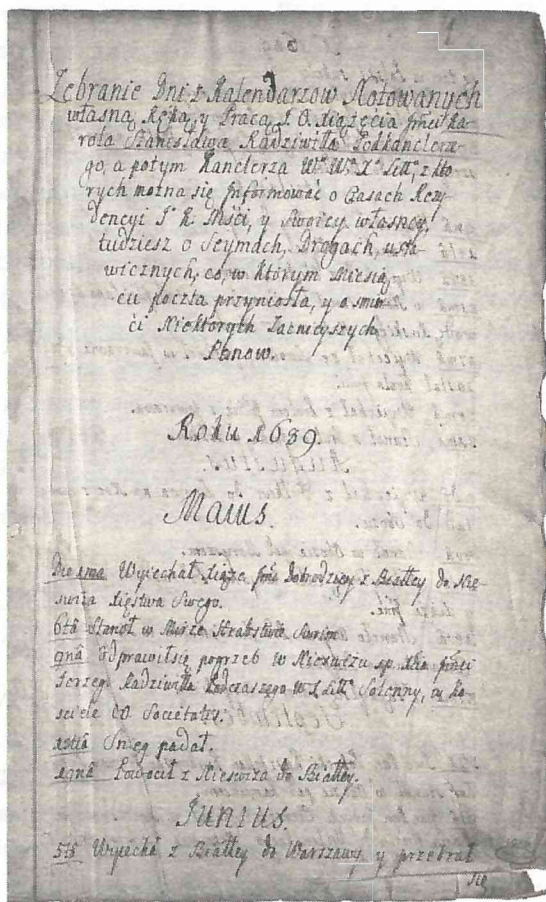 1
Zebranie Dni z Kalendarzow Notowanych
własną Ręką, y Pracą J. O. Xiążęcia Jmci Ka-
rola Stanisława Radziwiłła Podkanclerze-
go, a potym Kanclerza Wº Wº Xª Littº, z kto-
rych można się Jnformować o Czasach Rezy-
dencyi Jº X. Mści, y Sworzey własney,
tudziesz o Seymach, Drogach, usta-
wicznych, co, w którym Miesią-
cu poczta przyniosła, y o smier
ći Niektorych Zacnieyszych
Panow.
Roku 1689.
Maius.
Die 1ma Wyiechał Xiąże Jmć Dobrodziey z Białley do Nie-
swiża Xięstwa Swego.
6ta Stanoł w Mirze Hrabstwie Swoim
9na Odprawiłsię pogrzeb w Nieswiżu sp. Xcia Jmći
Jerzego Radziwiłła Podczaszego W. X. Littº Solenny, w ko-
sciele do Societatis.
Snieg padał.
19na Powrocił z Nieswiża do Białley.
Junius.
5ta Wyiechał z Białley do Warszawy y przebrał
się